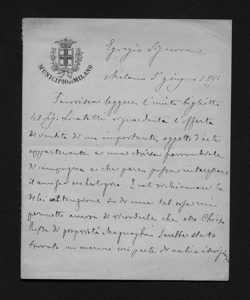 MUNICIPIO DI MILANO
Egregio Signore
Milano 5 giugno 18
Favorisca leggere l'unito biglietto
del Sig. riguardante l'offerta
di vendita di un importante oggetto d'arte
appartenente a una Chiesa parrocchiale
di campagna e che pare possa interessare
il museo archeologico. E nel richiamare la
di lei attenzione su di una tal cosa mi
permetto ancora di ricordarle che alla Chiesa
Rossa di proprietà
trovato un marmo con parte di antica iscrizi